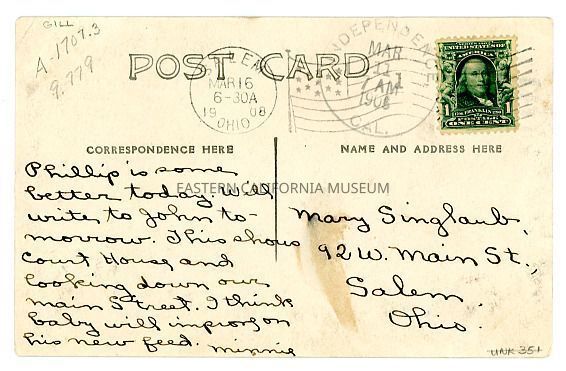 GILL
A-1707.3
9.779
POST CARD
SALEM
MAR 16
6-30A
1908
OHIO
INDEPENDENCE,
MAR
11
7 AM
1908
CAL.
ONE CENT
CORRESPONDENCE HERE
NAME AND ADDRESS HERE
EASTERN CALIFORNIA MUSEUM
Phillip is some
better today. Will
write to John to-
morrow. This shows
Court House and
looking down our
main Street. I think
baby will improve on
his new feed. Minnie
Mary Singlaub,
92 W. Main St.,
Salem
Ohio.
UNK 351